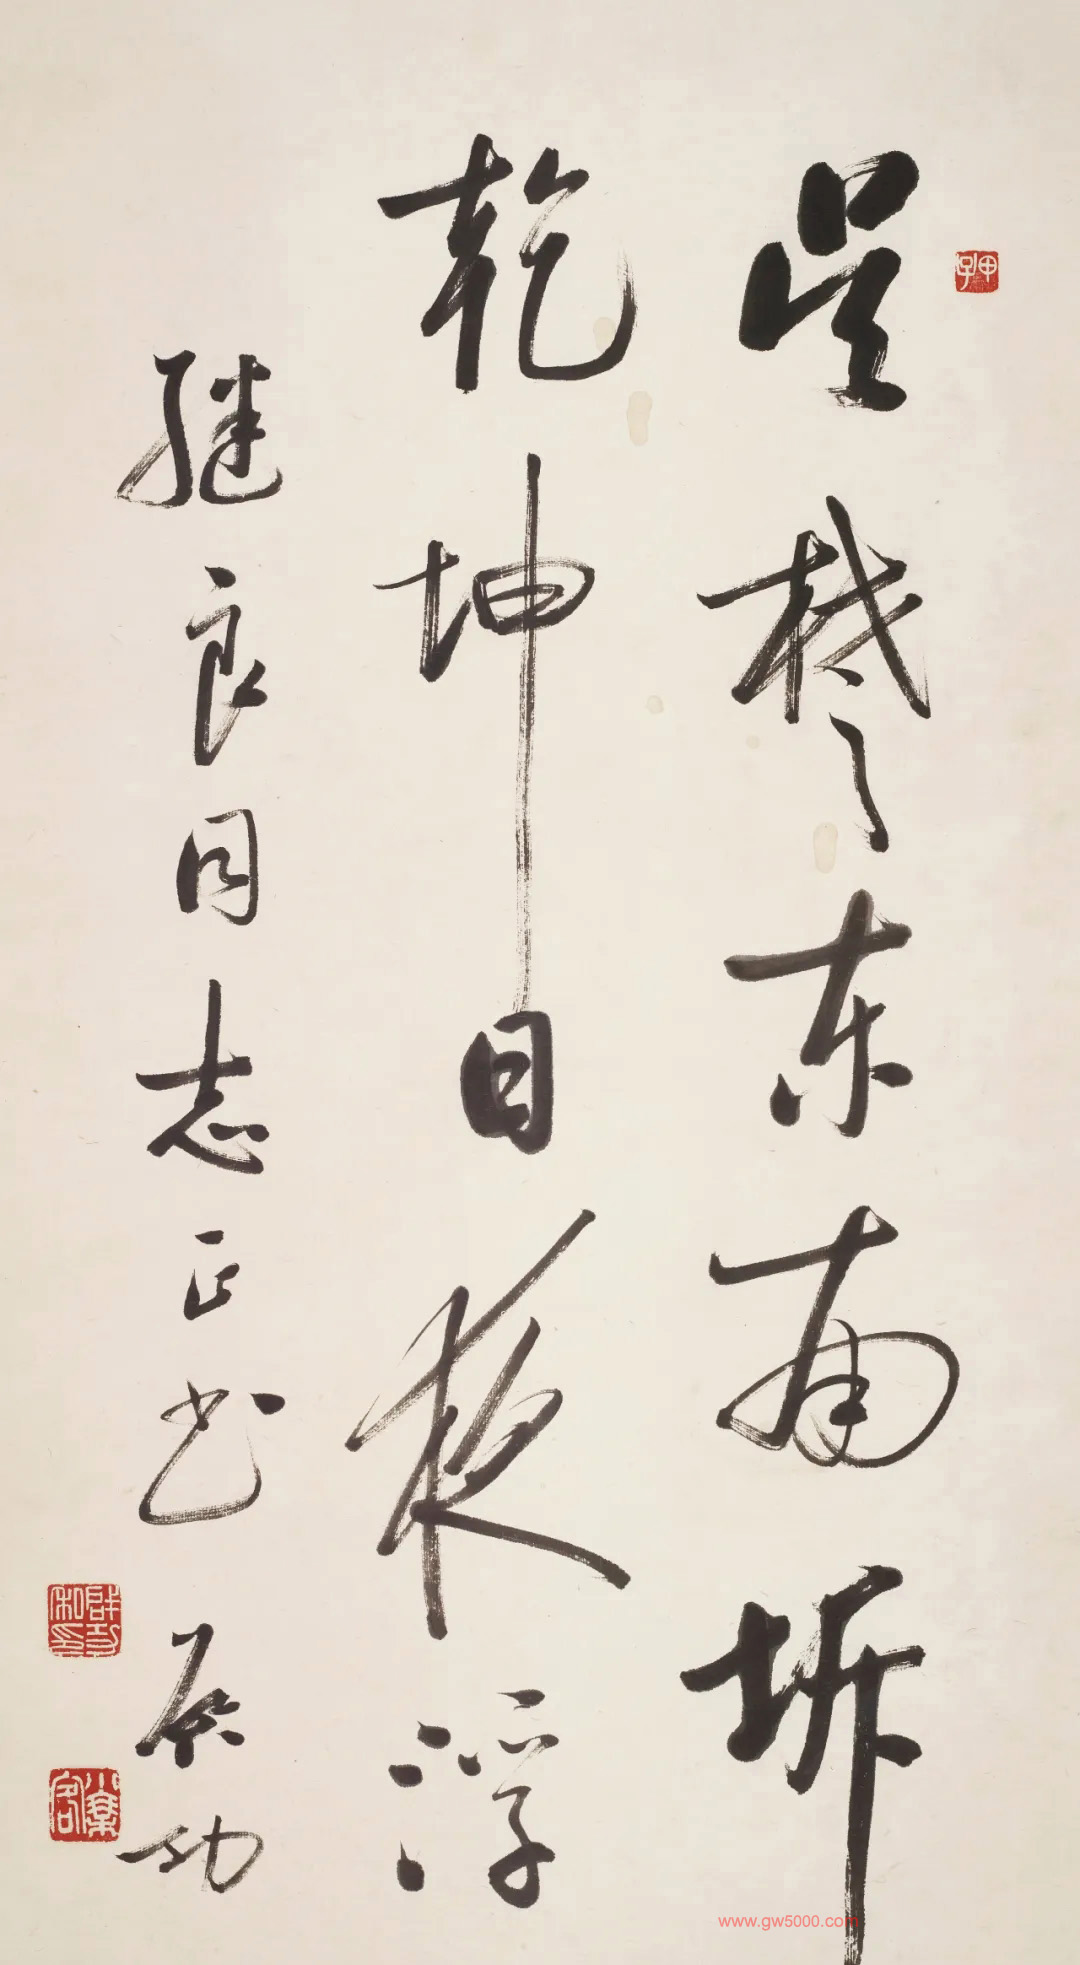 吴楚东南坼
乾坤日夜浮
继良同志正书 启功
启功私印
www.gw5000.com